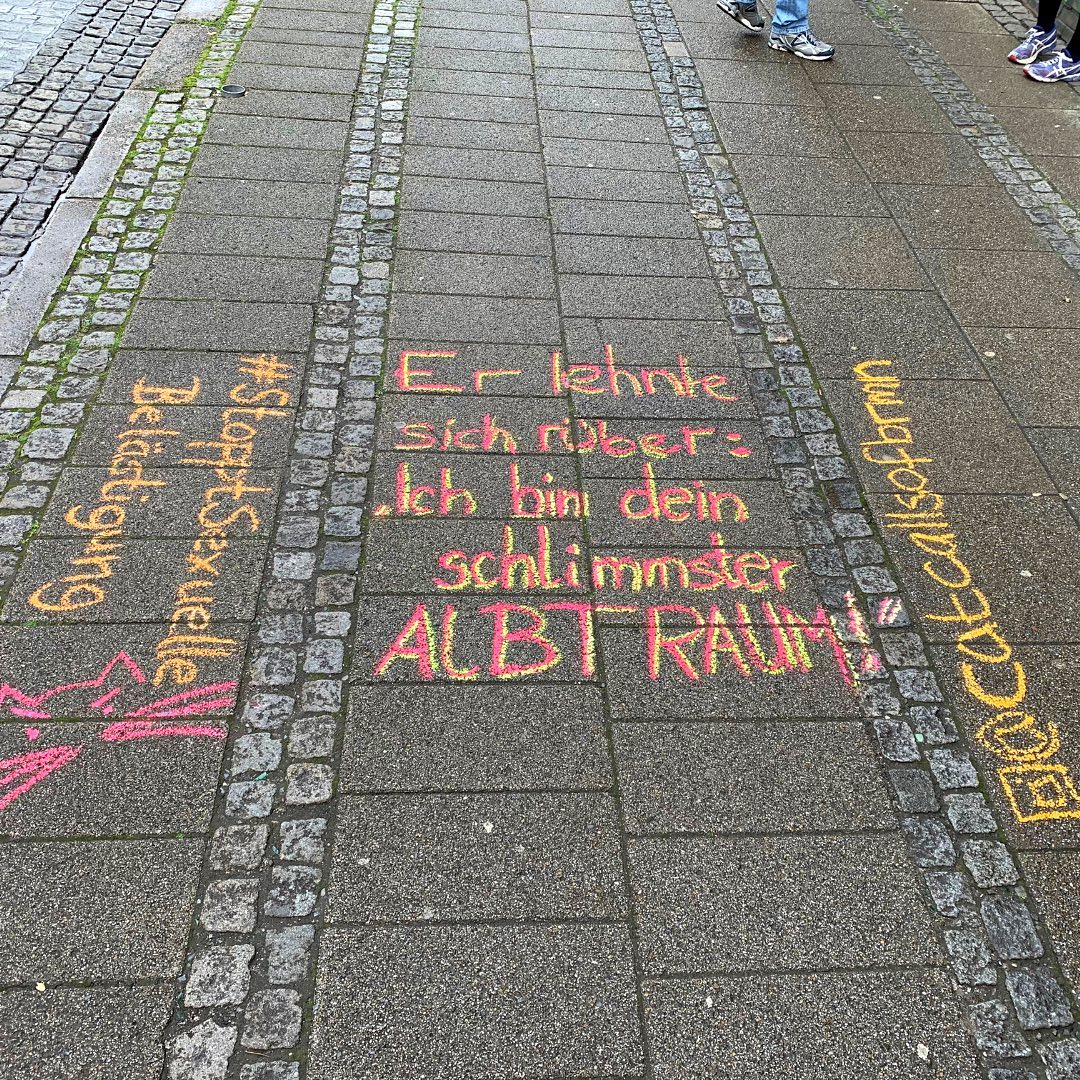 #StopptSexuelle
Belästigung
Er lehnte
sich rüber:
„Ich bin dein
schlimmster
ALBTRAUM!
@catcallsofbrmn